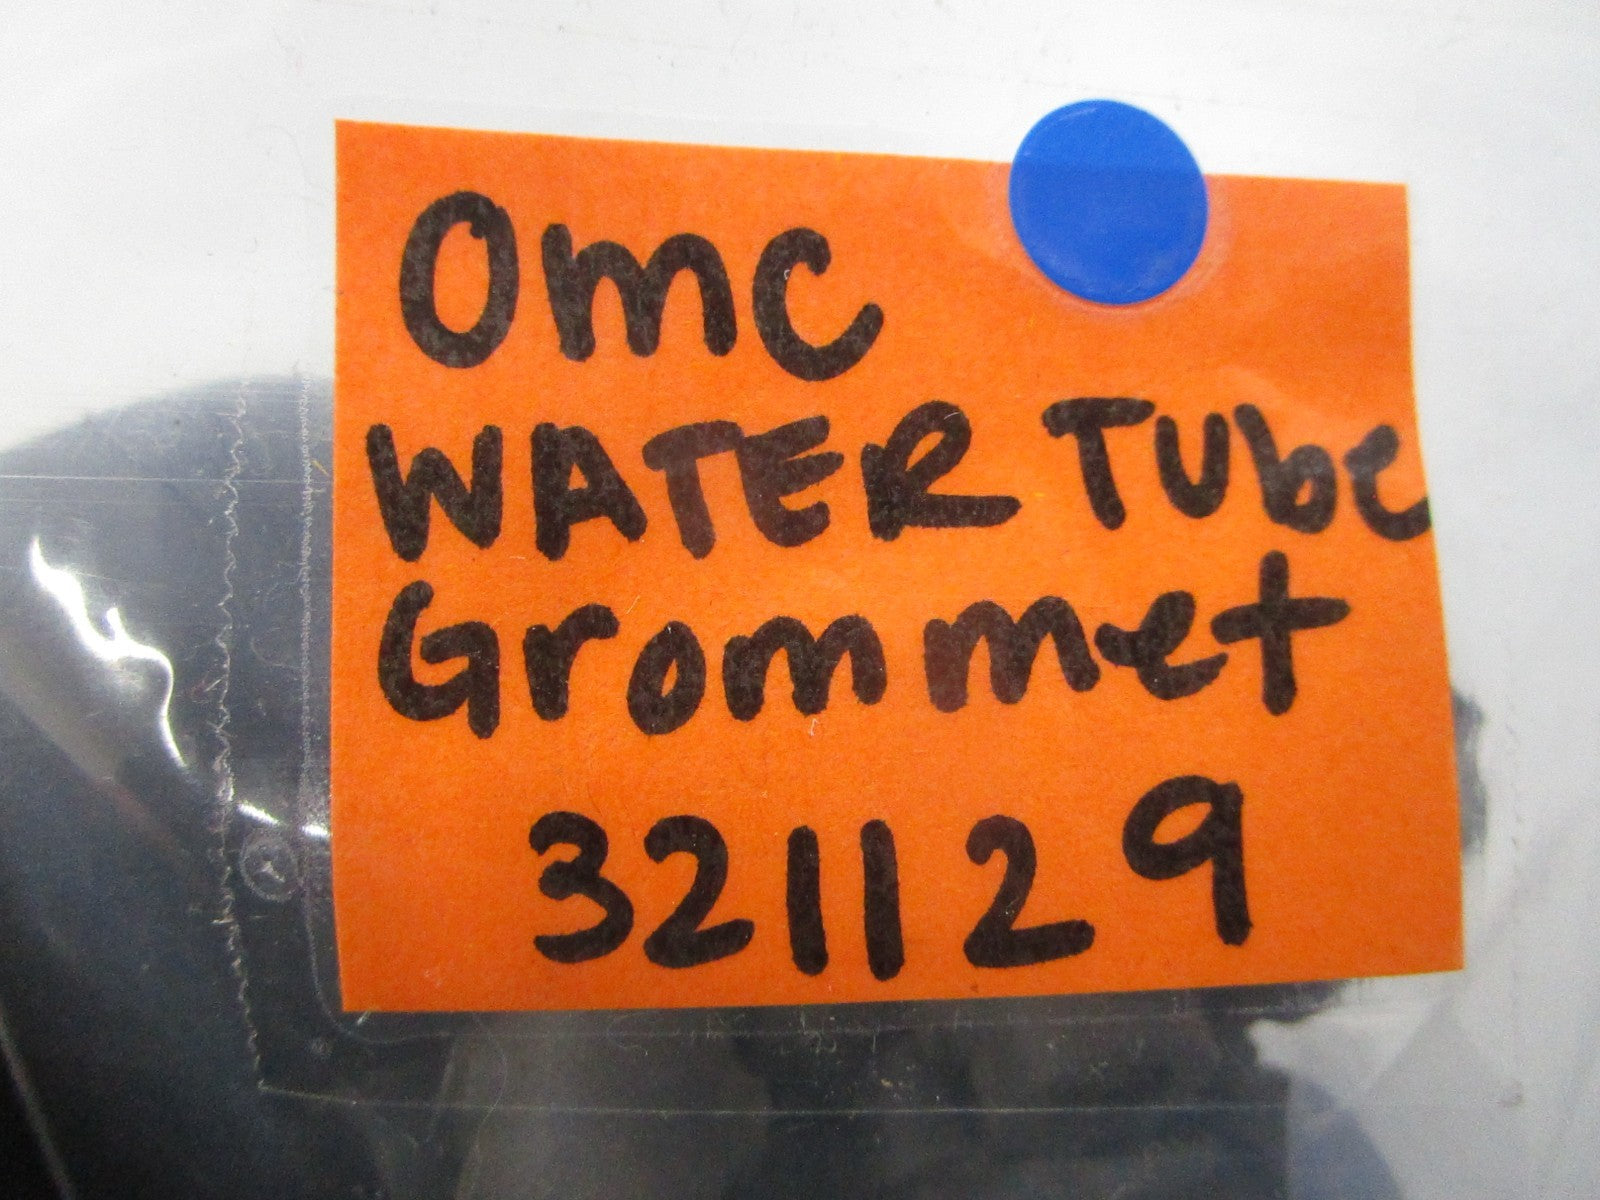 Omc
WATER Tube
Grommet
321129